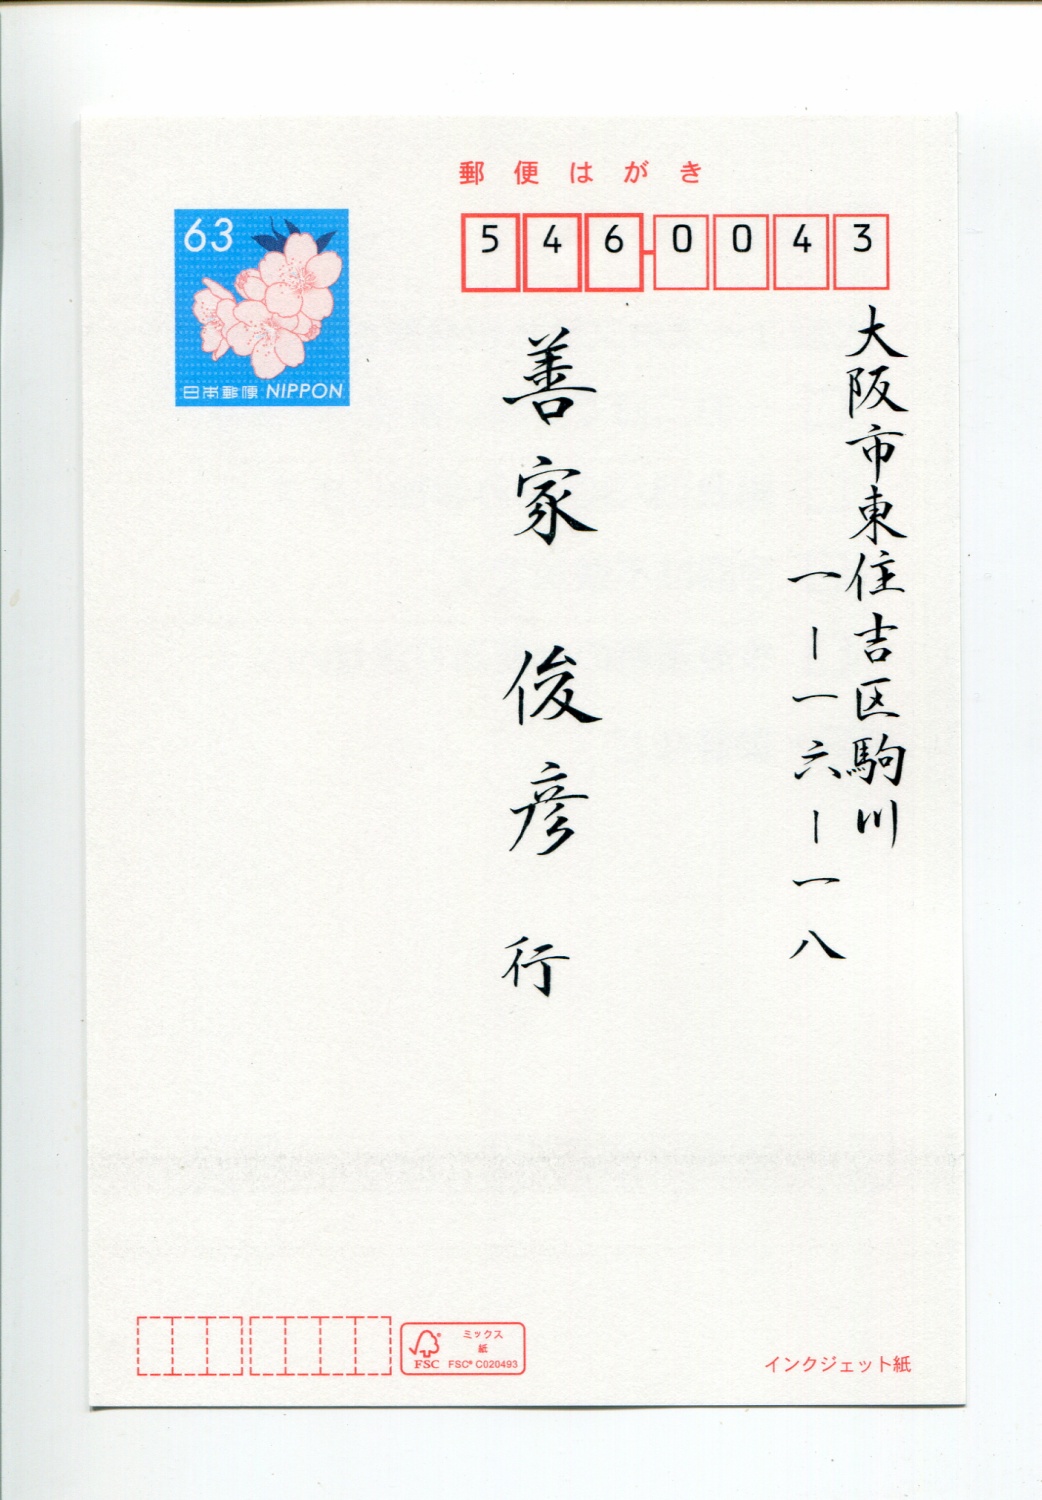 郵便はがき
63
日本郵便 NIPPON
546-0043
大阪市東住吉区駒川
一ー一六ー一八
善家 俊彦 行
FSC
ミックス
紙
FSC® C020493
インクジェット紙